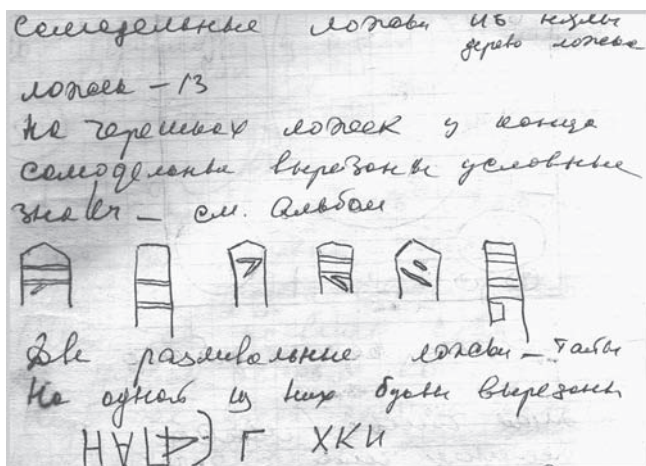 Самодельные ложки из
дерево ложка
ложек – 13
На черешках ложек у конца
самодельны вырезаны условные
знаки – см. Альбом
Две разливальные ложки –
На одной из них буквы вырезаны
Г ХКИ